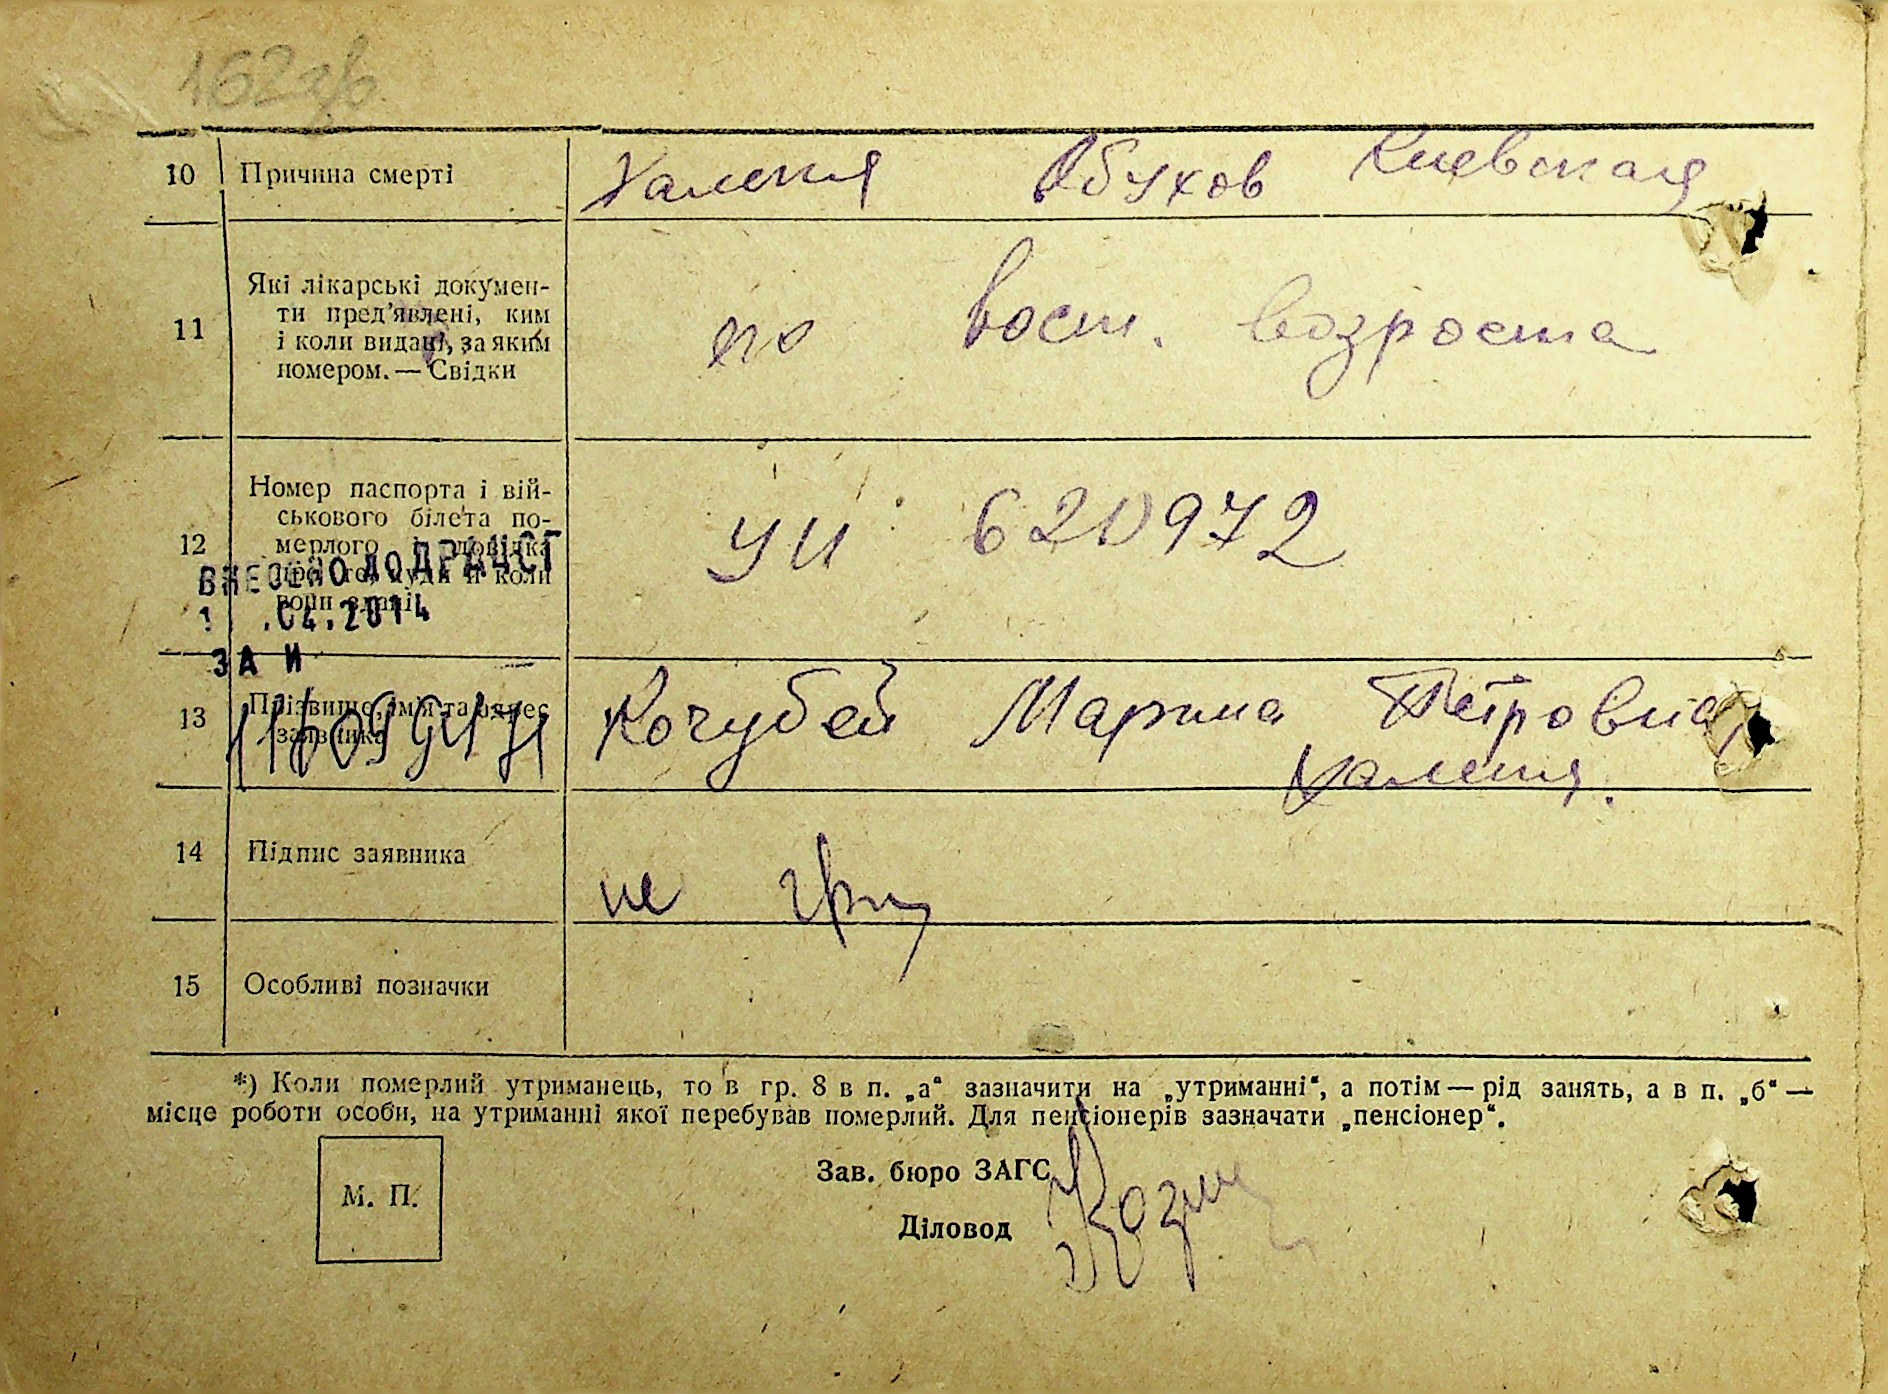 162зв
10 Причина смерті Халепя Обухов Киевская
11 Які лікарські докумен-
ти пред'явлені, ким
і коли видані, за яким
номером. — Свідки
по вост. возроста
12 Номер паспорта і вій-
ськового білета по-
мерлого і довідка
про те, куди й коли
вони здані
УИ 620972
ВНЕСЕНО ДО ДРАЦСГ
1 .04.2014
ЗА И
13 Прізвище, ім'я та адрес
заявника
Кочубей Марина Петровна
Халепя.
14 Підпис заявника не
15 Особливі позначки
*) Коли померлий утриманець, то в гр. 8 в п. „а“ зазначити на „утриманні“, а потім — рід занять, а в п. „б“ —
місце роботи особи, на утриманні якої перебував померлий. Для пенсіонерів зазначати „пенсіонер“.
М. П.
Зав. бюро ЗАГС
Діловод